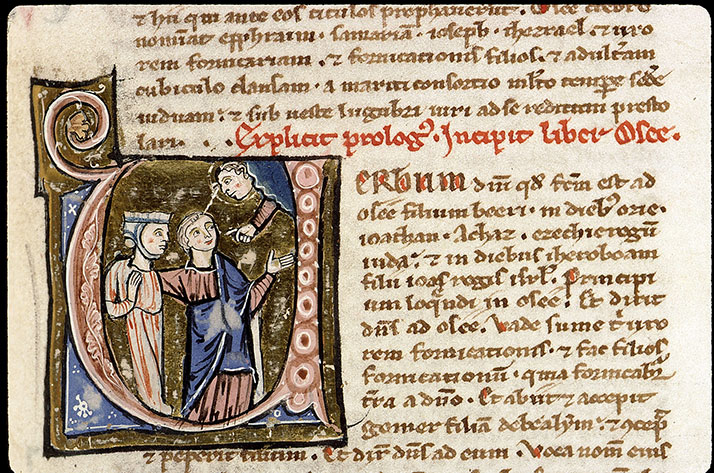 & hii qui ante eos titulos prophauerūt. Osee crebro
nominat effraim. samariā. ioseph. ihezrael. & uxo
rem fornicariam. & fornicationis filios. & adultam
cubiculo clausam. a mariti consortio mlto tempore sedē
uiduam. & sub ueste lugubri uiri ad se reditum presto
lari. Explicit prologꝰ. Incipit liber Osee.
Verbum dni qđ fcm est ad
osee filium beeri. in diebꝰ orie.
ioathan. Achaz. ezechie regū
iuda. & in diebus iheroboam
filii ioas regis isrl. Principi
um loqndi in osee. Et dixit
dn̄s ad osee. Vade sume t̄ uxo
rem fornicationis. & fac filios
fornicationū. quia fornicabr̄
t̄ra a dn̄o. Et abiit & accepit
gomer filiam debealym. & 9cep̄
& peperit filium. Et dix̄ dn̄s ad eum. Voca nom̄ eius